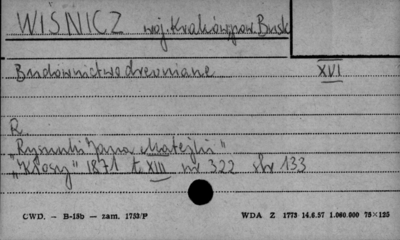 WIŚNICZ woj. Kraków, pow. Busk
Budownictwo drewniane XVI
R.
Rysunki "Jana Matejki"
"Kłosy" 1871 t. XIII nr 322 str 133
CWD. — B-15b — zam. 1753/P WDA Z 1773 14.6.57 1.060.600 75×125